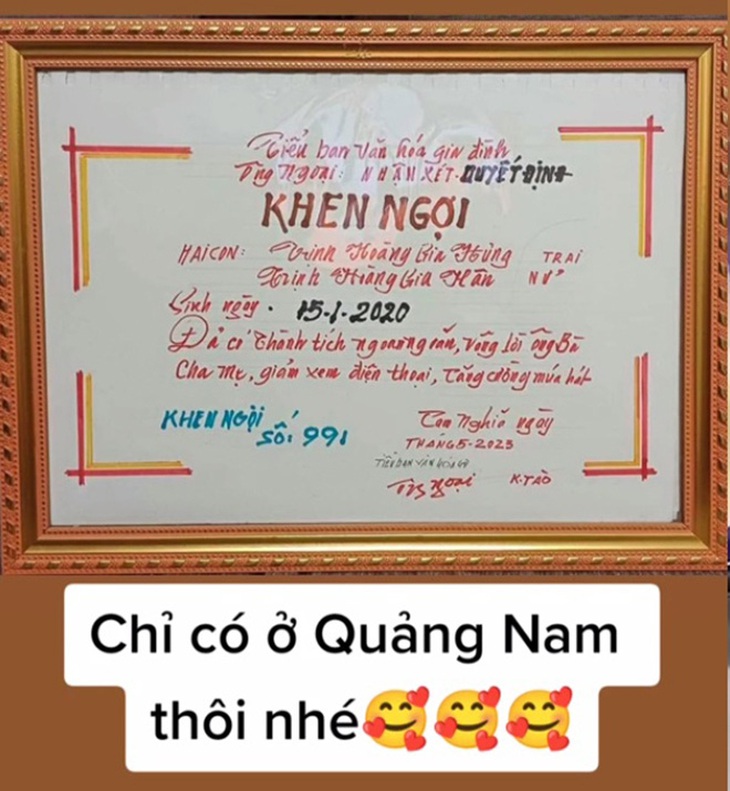 Tiểu ban Văn hóa gia đình
Ông Ngoại: NHẬN XÉT-QUYẾT ĐỊNH
KHEN NGỢI
HAI CON: Trịnh Hoàng Gia Hưng TRAI
Trịnh Hoàng Gia Hân NỮ
Sinh ngày. 15-1-2020
Đã có thành tích ngoan ngoãn, vâng lời ông Bà
Cha mẹ, giảm xem điện thoại, tăng cường múa hát
KHEN NGỢI
SỐ: 991
Tam Nghĩa ngày
THÁNG 5-2023
TIỂU BAN VĂN HÓA GĐ
Ông Ngoại K.TÀO
Chỉ có ở Quảng Nam
thôi nhé🥰🥰🥰